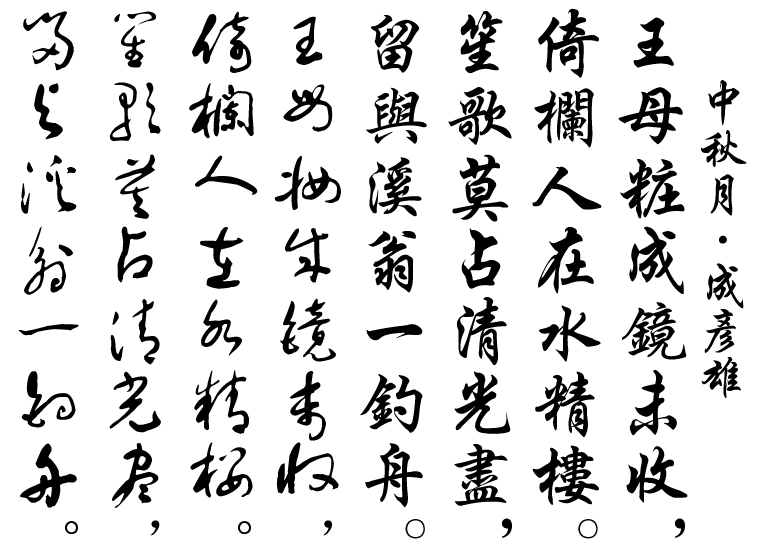 中秋月·成彥雄
王母粧成鏡未收，
倚欄人在水精樓。
笙歌莫占清光盡，
留與溪翁一釣舟。
王母妝成镜未收，
倚欄人在水精楼。
笙歌莫占清光尽，
留与溪翁一钓舟。